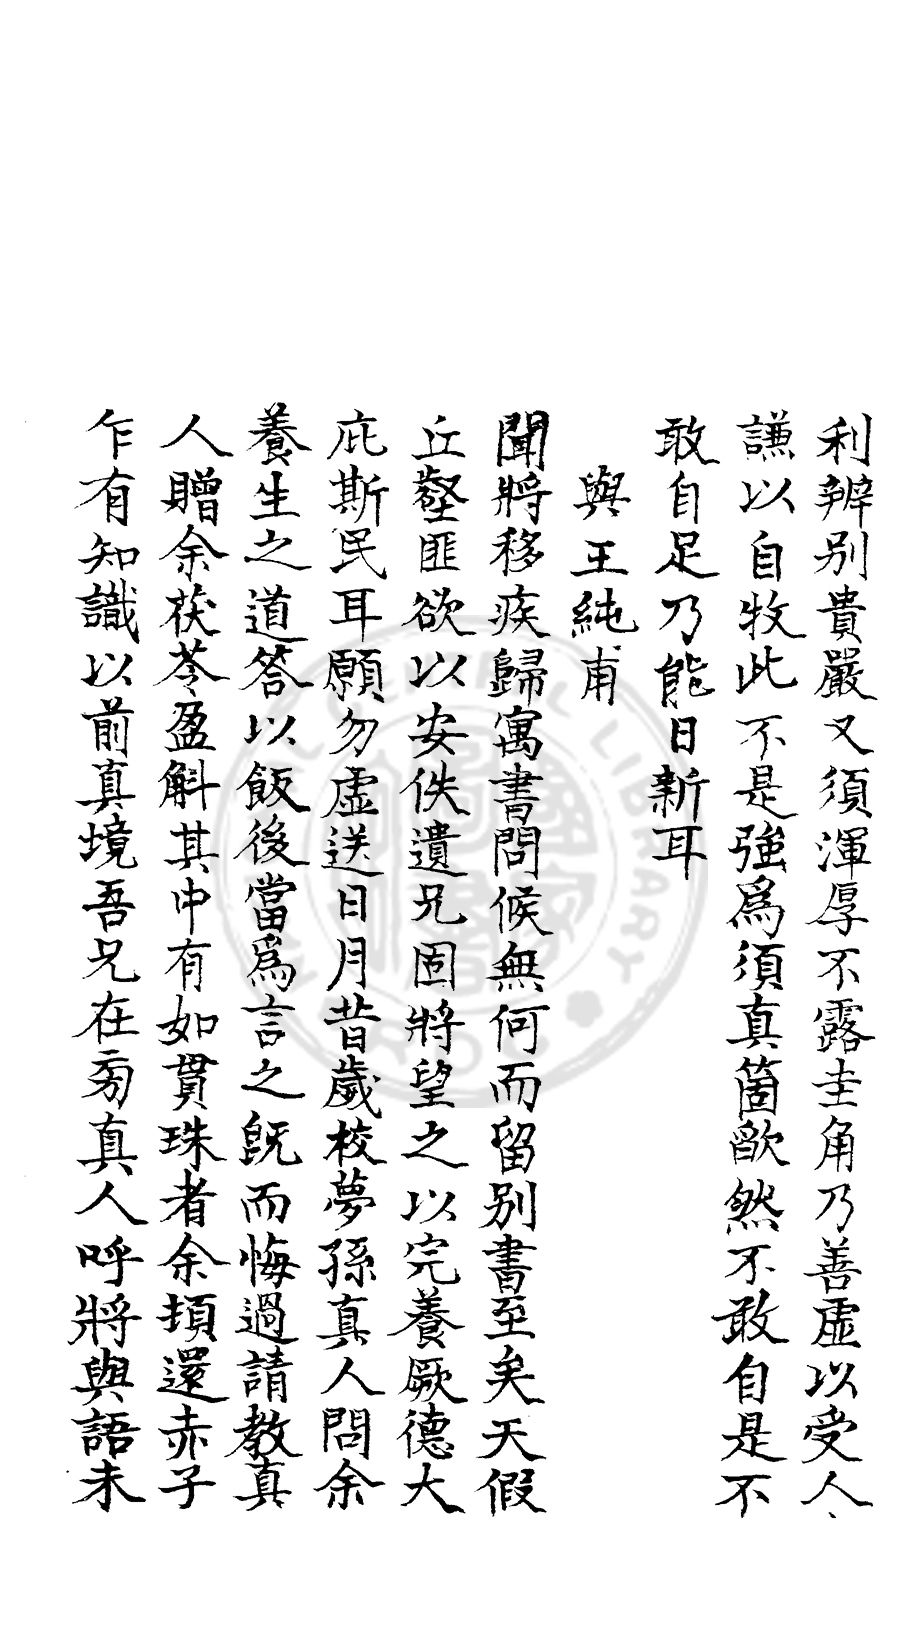 利辨别貴嚴又須渾厚不露圭角乃善虛以受人
謙以自牧此不是強爲須真箇歉然不敢自是不
敢自足乃能日新耳
與王純甫
聞將移疾歸寓書問候無何而留别書至矣天假
丘壑匪欲以安佚遺兄固將望之以完養厥德大
庇斯民耳願勿虛送日月昔歲校夢孫真人問余
養生之道答以飯後當爲言之旣而悔過請教真
人贈余茯苓盈斛其中有如貫珠者余頃還赤子
乍有知識以前真境吾兄在旁真人呼將與語未
CENTRAL LIBRARY